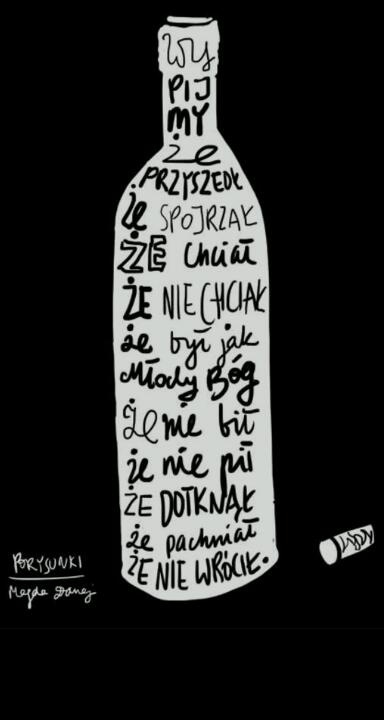 Wy
PIJ
MY
że
PRZYSZEDŁ
że SPOJRZAŁ
ŻE chciał
ŻE NIE CHCIAŁ
że był jak
Młody Bóg
że nie bił
że nie pił
ŻE DOTKNĄŁ
że pachniał
ŻE NIE WRÓCIŁ.
PORYSUNKI
Magda Danaj